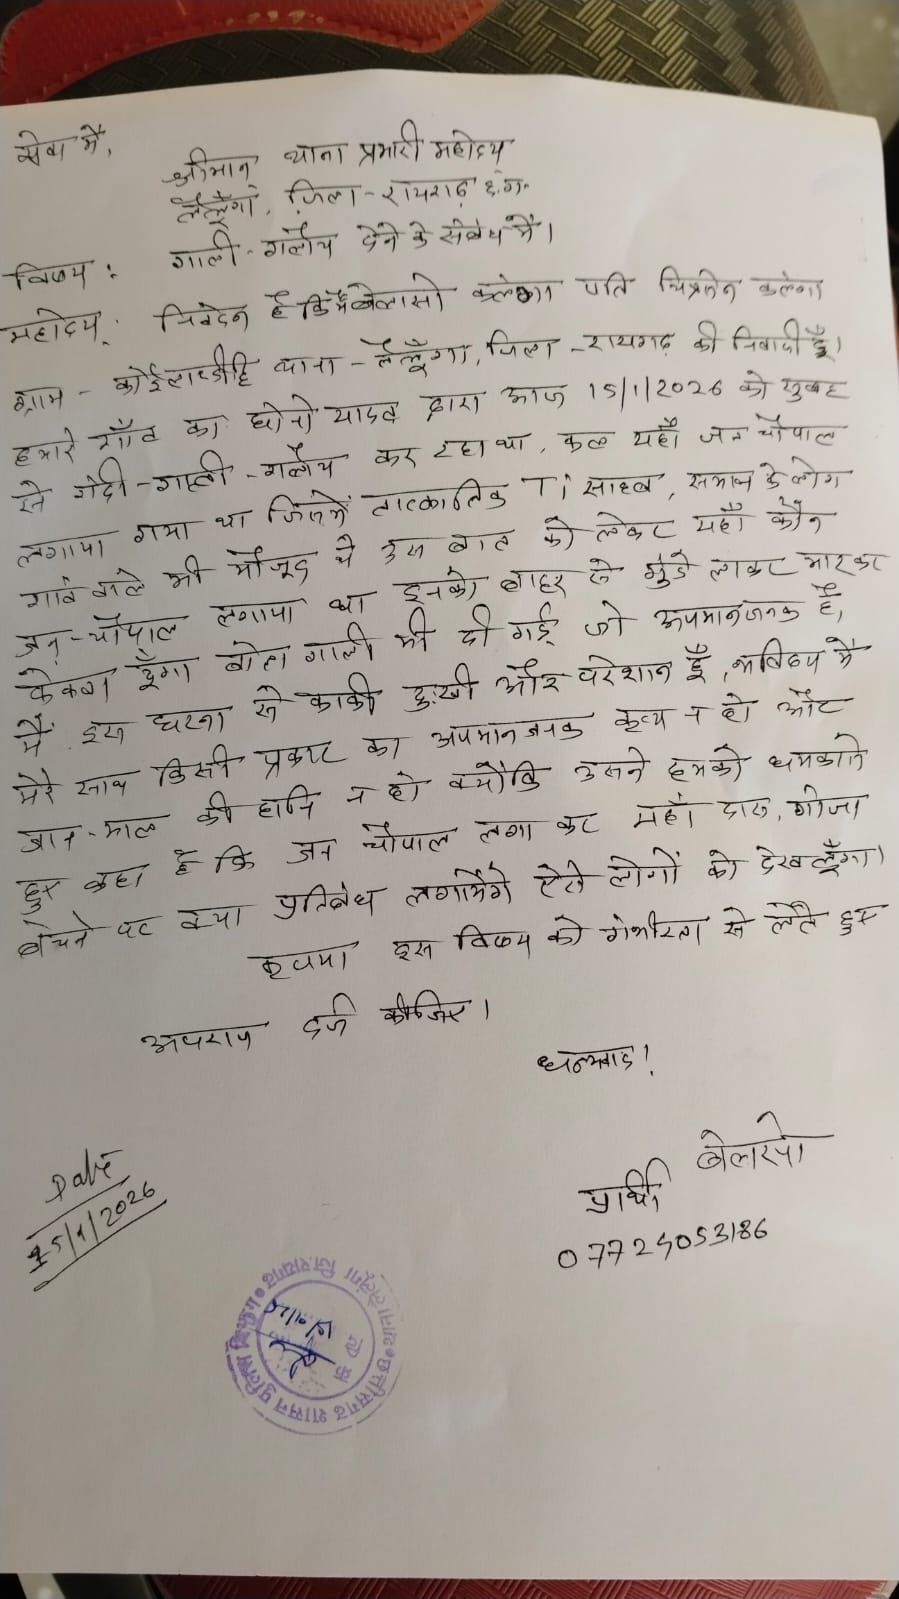 सेवा में,
श्रीमान् थाना प्रभारी महोदय
लैलूँगा, जिला - रायगढ़ छ.ग.
विषय : गाली - गलौच देने के संबंध में।
महोदय, निवेदन है कि मैं बेलासो कलंगा पति चित्रसेन कलंगा
ग्राम - कोईलारडीह थाना - लैलूँगा, जिला - रायगढ़ की निवासी हूँ।
हमारे गाँव का यादव द्वारा आज 15/1/2026 को सुबह
से गंदी - गाली - गलौच कर रहा था, कल यहाँ जन चौपाल
लगाया गया था जिसमें तात्कालिक Ti साहब, समाज के लोग
गांव वाले भी मौजूद थे उस बात को लेकर यहाँ कौन
जन - चौपाल लगाया था इनको बाहर से गुंडे लाकर मारकर
फेकवा दूँगा बोला गाली भी दी गई जो अपमानजनक है,
मैं इस घटना से काफी दुःखी और परेशान हूँ, भविष्य में
मेरे साथ किसी प्रकार का अपमानजनक कृत्य न हो और
जान - माल की हानि न हो क्योंकि उसने हमको धमकाते
हुए कहा है कि जन चौपाल लगा कर यहाँ दारु, गांजा
बेचने पर क्या प्रतिबंध लगायेंगे ऐसे लोगों को देख लूँगा।
कृपया इस विषय को गंभीरता से लेते हुए
अपराध दर्ज कीजिए।
धन्यवाद!
Date
15/1/2026
बेलासो
प्रार्थी
07724053186
थाना लैलूंगा जि. रायगढ़
छत्तीसगढ़ शासन पुलिस